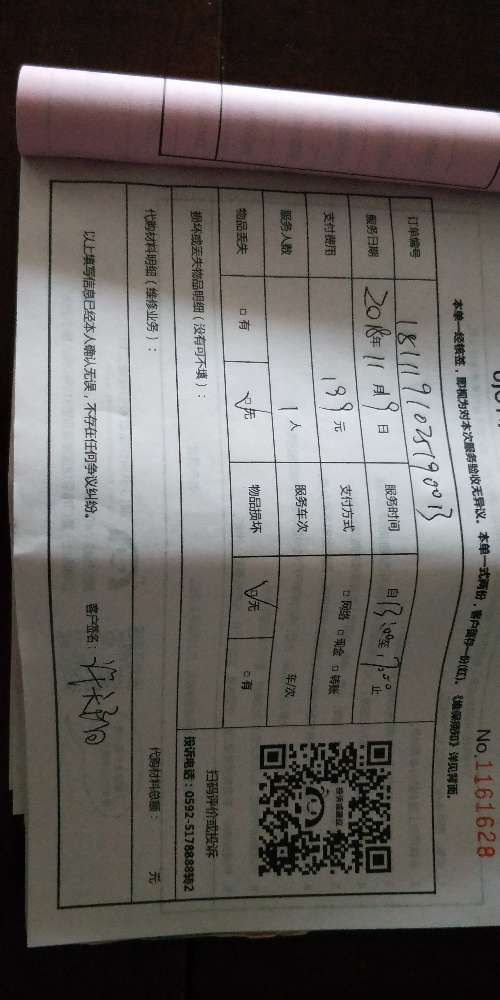 No.1161628
本单一经核签，即视为对本次服务验收无异议。本单一式两份，客户留存一份(红)。《维保须知》详见背面。
订单编号
服务日期 2018年 11月 9日 服务时间 自 至 17:00 止
支付费用 199元 支付方式 □网络 □现金 □转账
服务人数 1人 服务车次 车/次
物品丢失 □有 □无 物品损坏 □无 □有
损坏或丢失物品明细（没有可不填）：
扫码评价或投诉
投诉电话：0592-5178888转2
代购材料明细（维修业务）： 代购材料总额： 元
以上填写信息已经本人确认无误，不存在任何争议纠纷。 客户签名：